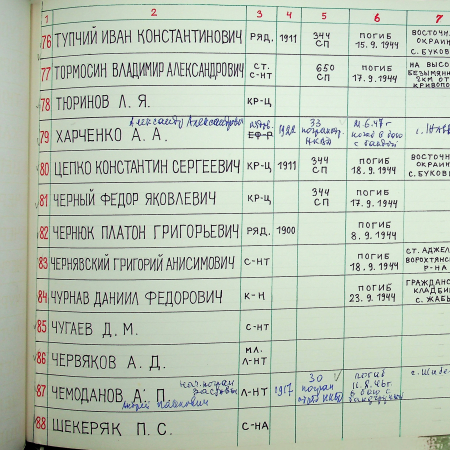 1 2 3 4 5 6 7
76 ТУПЧИЙ ИВАН КОНСТАНТИНОВИЧ РЯД. 1911 344 СП ПОГИБ 15.9.1944 ВОСТОЧН. ОКРАИН С. БУКОВ
77 ТОРМОСИН ВЛАДИМИР АЛЕКСАНДРОВИЧ СТ. С-НТ 650 СП ПОГИБ 17.9.1944 НА ВЫСО БЕЗЫМЯНН 2КМ ОТ КРИВОПО
78 ТЮРИНОВ Л. Я. КР-Ц
Александр Александрович
79 ХАРЧЕНКО А. А. ЕФ-Р 1922 33
80 ЦЕПКО КОНСТАНТИН СЕРГЕЕВИЧ КР-Ц 1911 344 СП ПОГИБ 18.9.1944 ВОСТОЧН ОКРАИН С. БУКОВ
81 ЧЕРНЫЙ ФЕДОР ЯКОВЛЕВИЧ КР-Ц 344 СП ПОГИБ 17.9.1944
82 ЧЕРНЮК ПЛАТОН ГРИГОРЬЕВИЧ РЯД. 1900 ПОГИБ 8.9.1944
83 ЧЕРНЯВСКИЙ ГРИГОРИЙ АНИСИМОВИЧ С-НТ ПОГИБ 18.9.1944 СТ. АДЖЕЛ ВОРОХТЯНС Р-НА
84 ЧУРНАВ ДАНИИЛ ФЕДОРОВИЧ К-Н ПОГИБ 23.9.1944 ГРАЖДАНС КЛАДБИ С. ЖАБЬ
85 ЧУГАЕВ Д. М. С-НТ
86 ЧЕРВЯКОВ А. Д. МЛ. Л-НТ
87 ЧЕМОДАНОВ А. П. нач. погран заставы Л-НТ 1917 30 погран погиб
Андрей Павлович
88 ШЕКЕРЯК П. С. С-НА